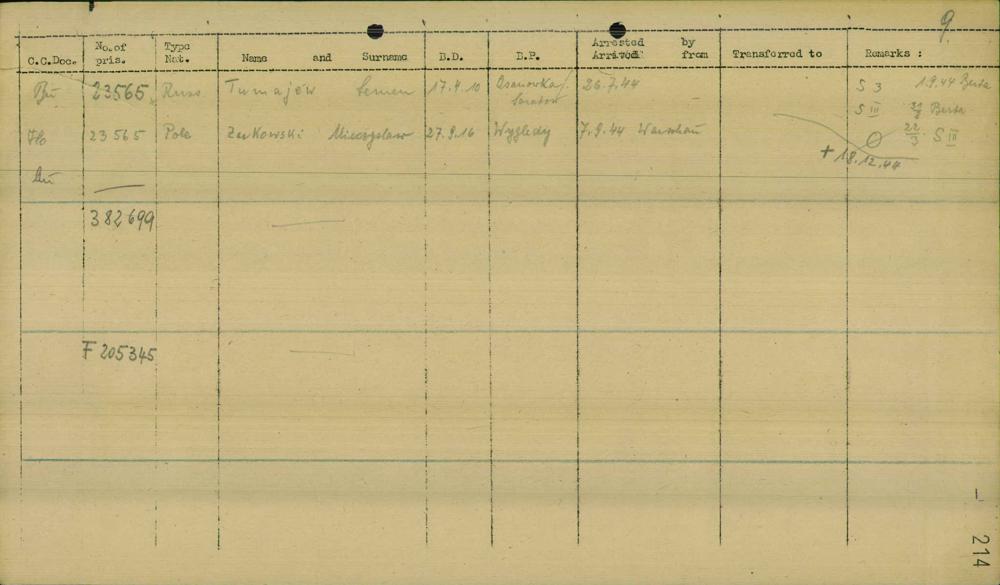 9.
C.C.Doc. No. of pris. Type Nat. Name and Surname B.D. B.P. Arrested by Arrived from Transferred to Remarks :
Bu 23565 Russ Tumajew Semen 17.4.10 Osanowka/. Saratow 26.7.44 S 3 1.9.44 Berta
S III Berta
Flo 23565 Pole Zurkowski Mieczyslaw 27.9.16 Wygledy 7.9.44 Warschau 22/3 S III
+ 18.12.44
Au —
382699 —
F 205345 —
214